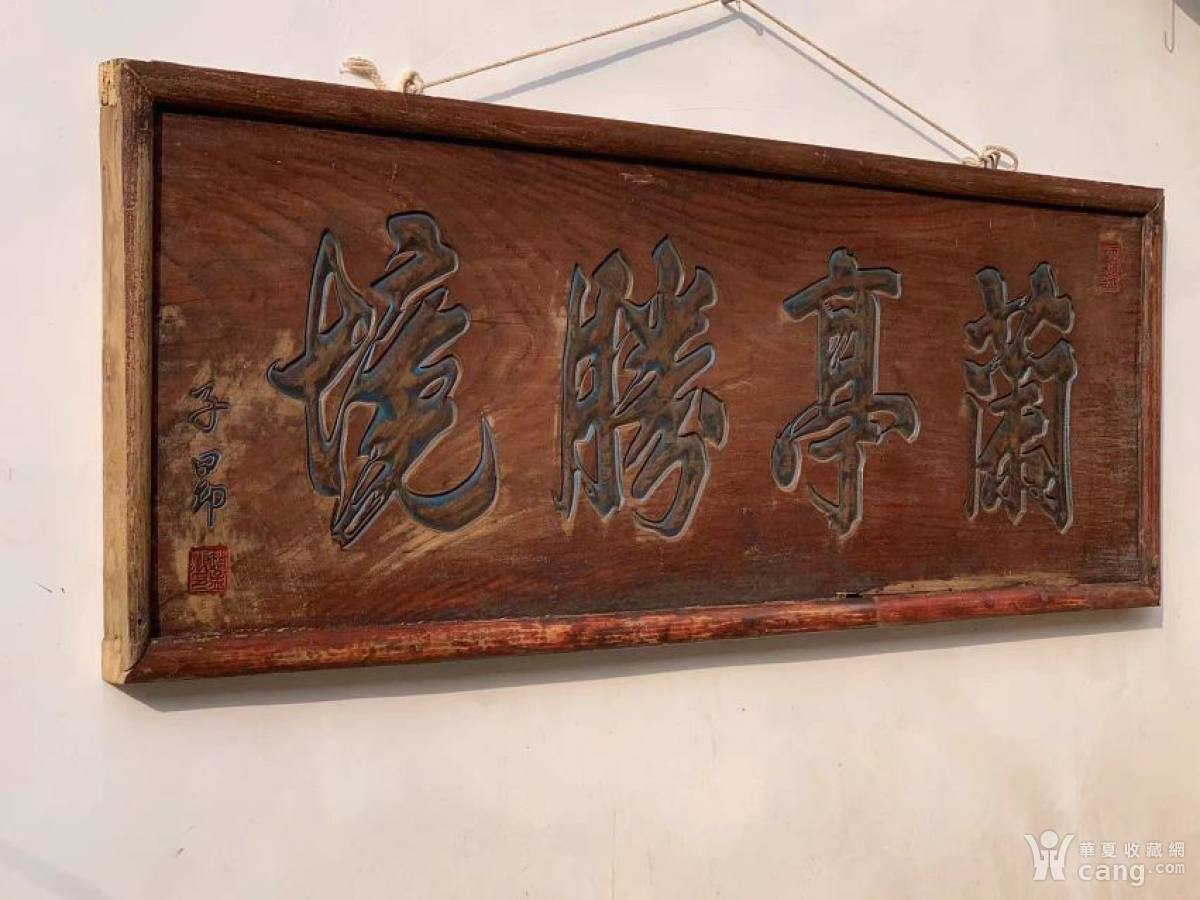 蘭亭勝境
子昂
華夏收藏網
cang.com